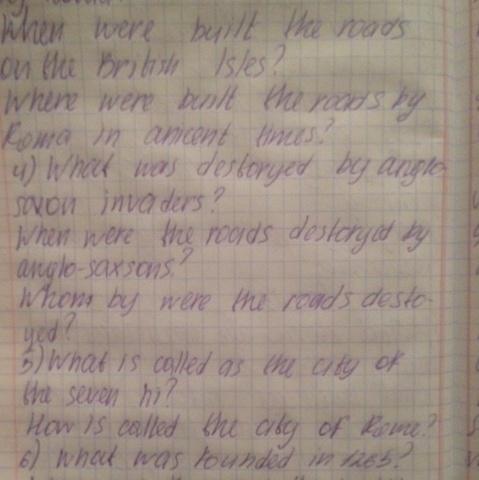 When were built the roads
on the British Isles?
Where were built the roads by
Roma in anicent times?
4) What was destoryed by anglo-
saxon invaders?
When were the roads destoryed by
anglo-saxsons?
Whom by were the roads desto-
yed?
5) What is called as the city of
the seven hi?
How is called the city of Rome?
6) What was founded in 1265?